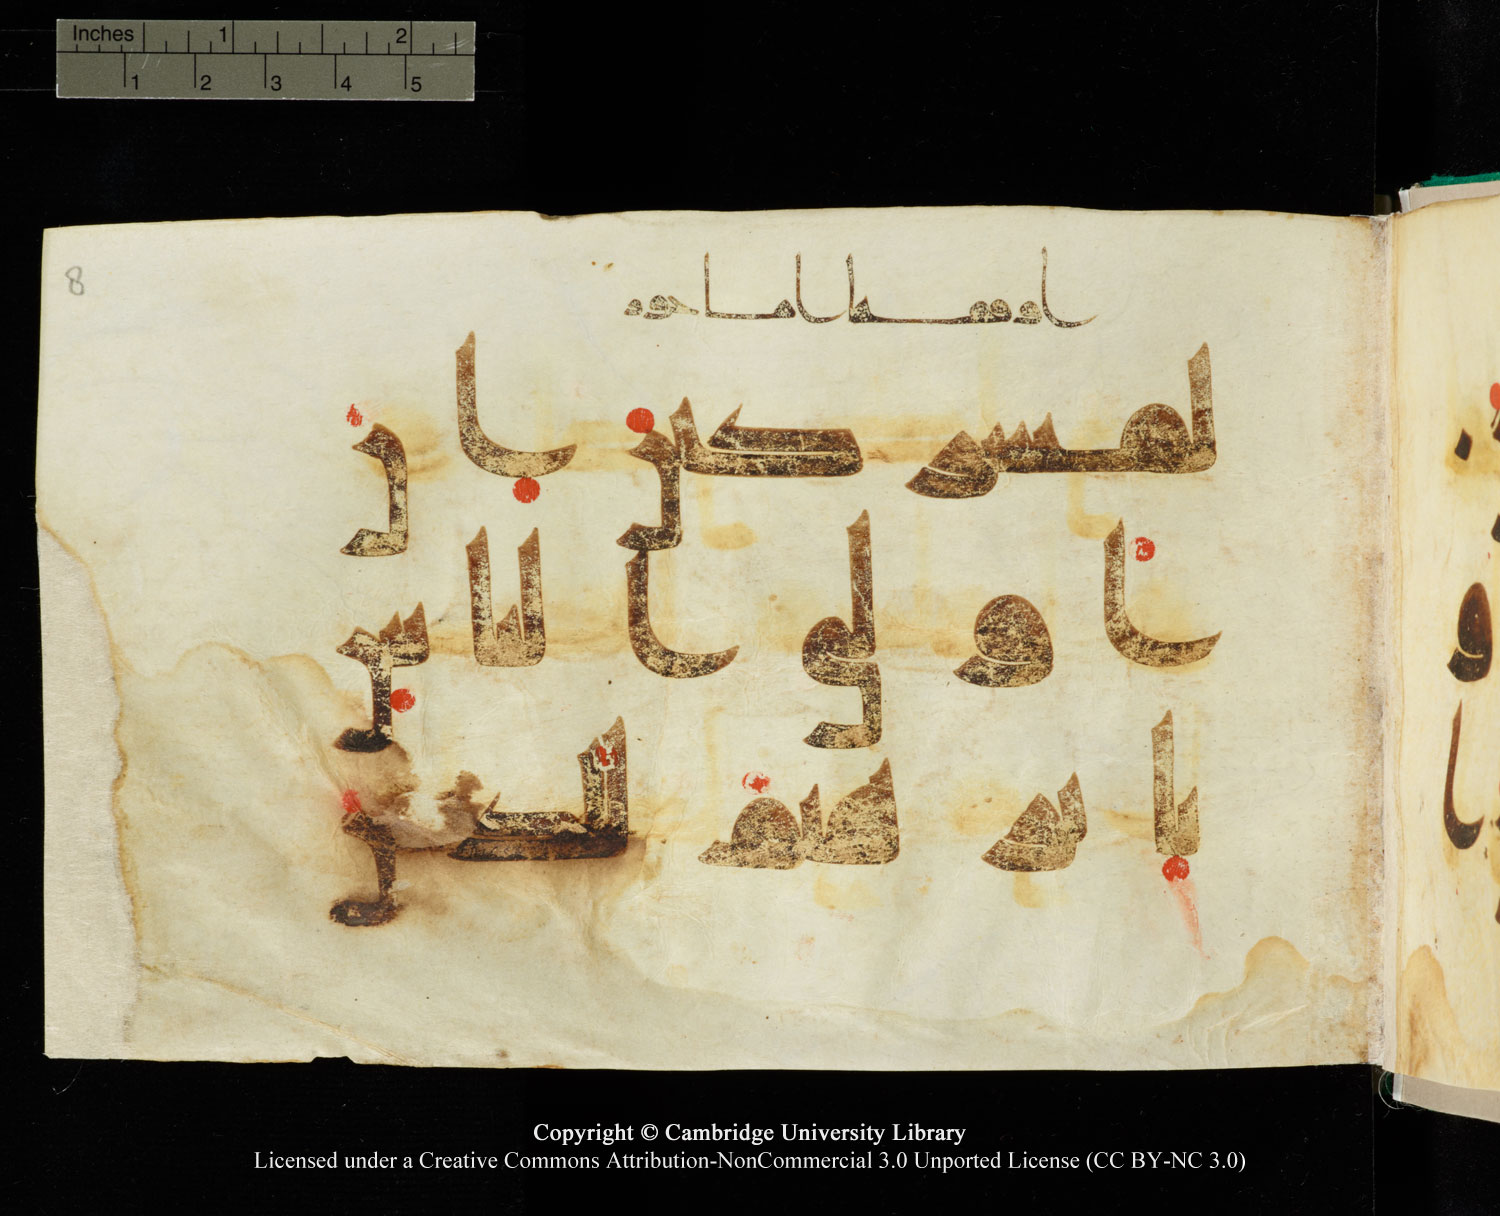 Inches 1 2
1 2 3 4 5
8
وقف اماجور
لمشركين ا ن
ا و لى ا لنا س
با بر هيم للذين
Copyright © Cambridge University Library
Licensed under a Creative Commons Attribution-NonCommercial 3.0 Unported License (CC BY-NC 3.0)